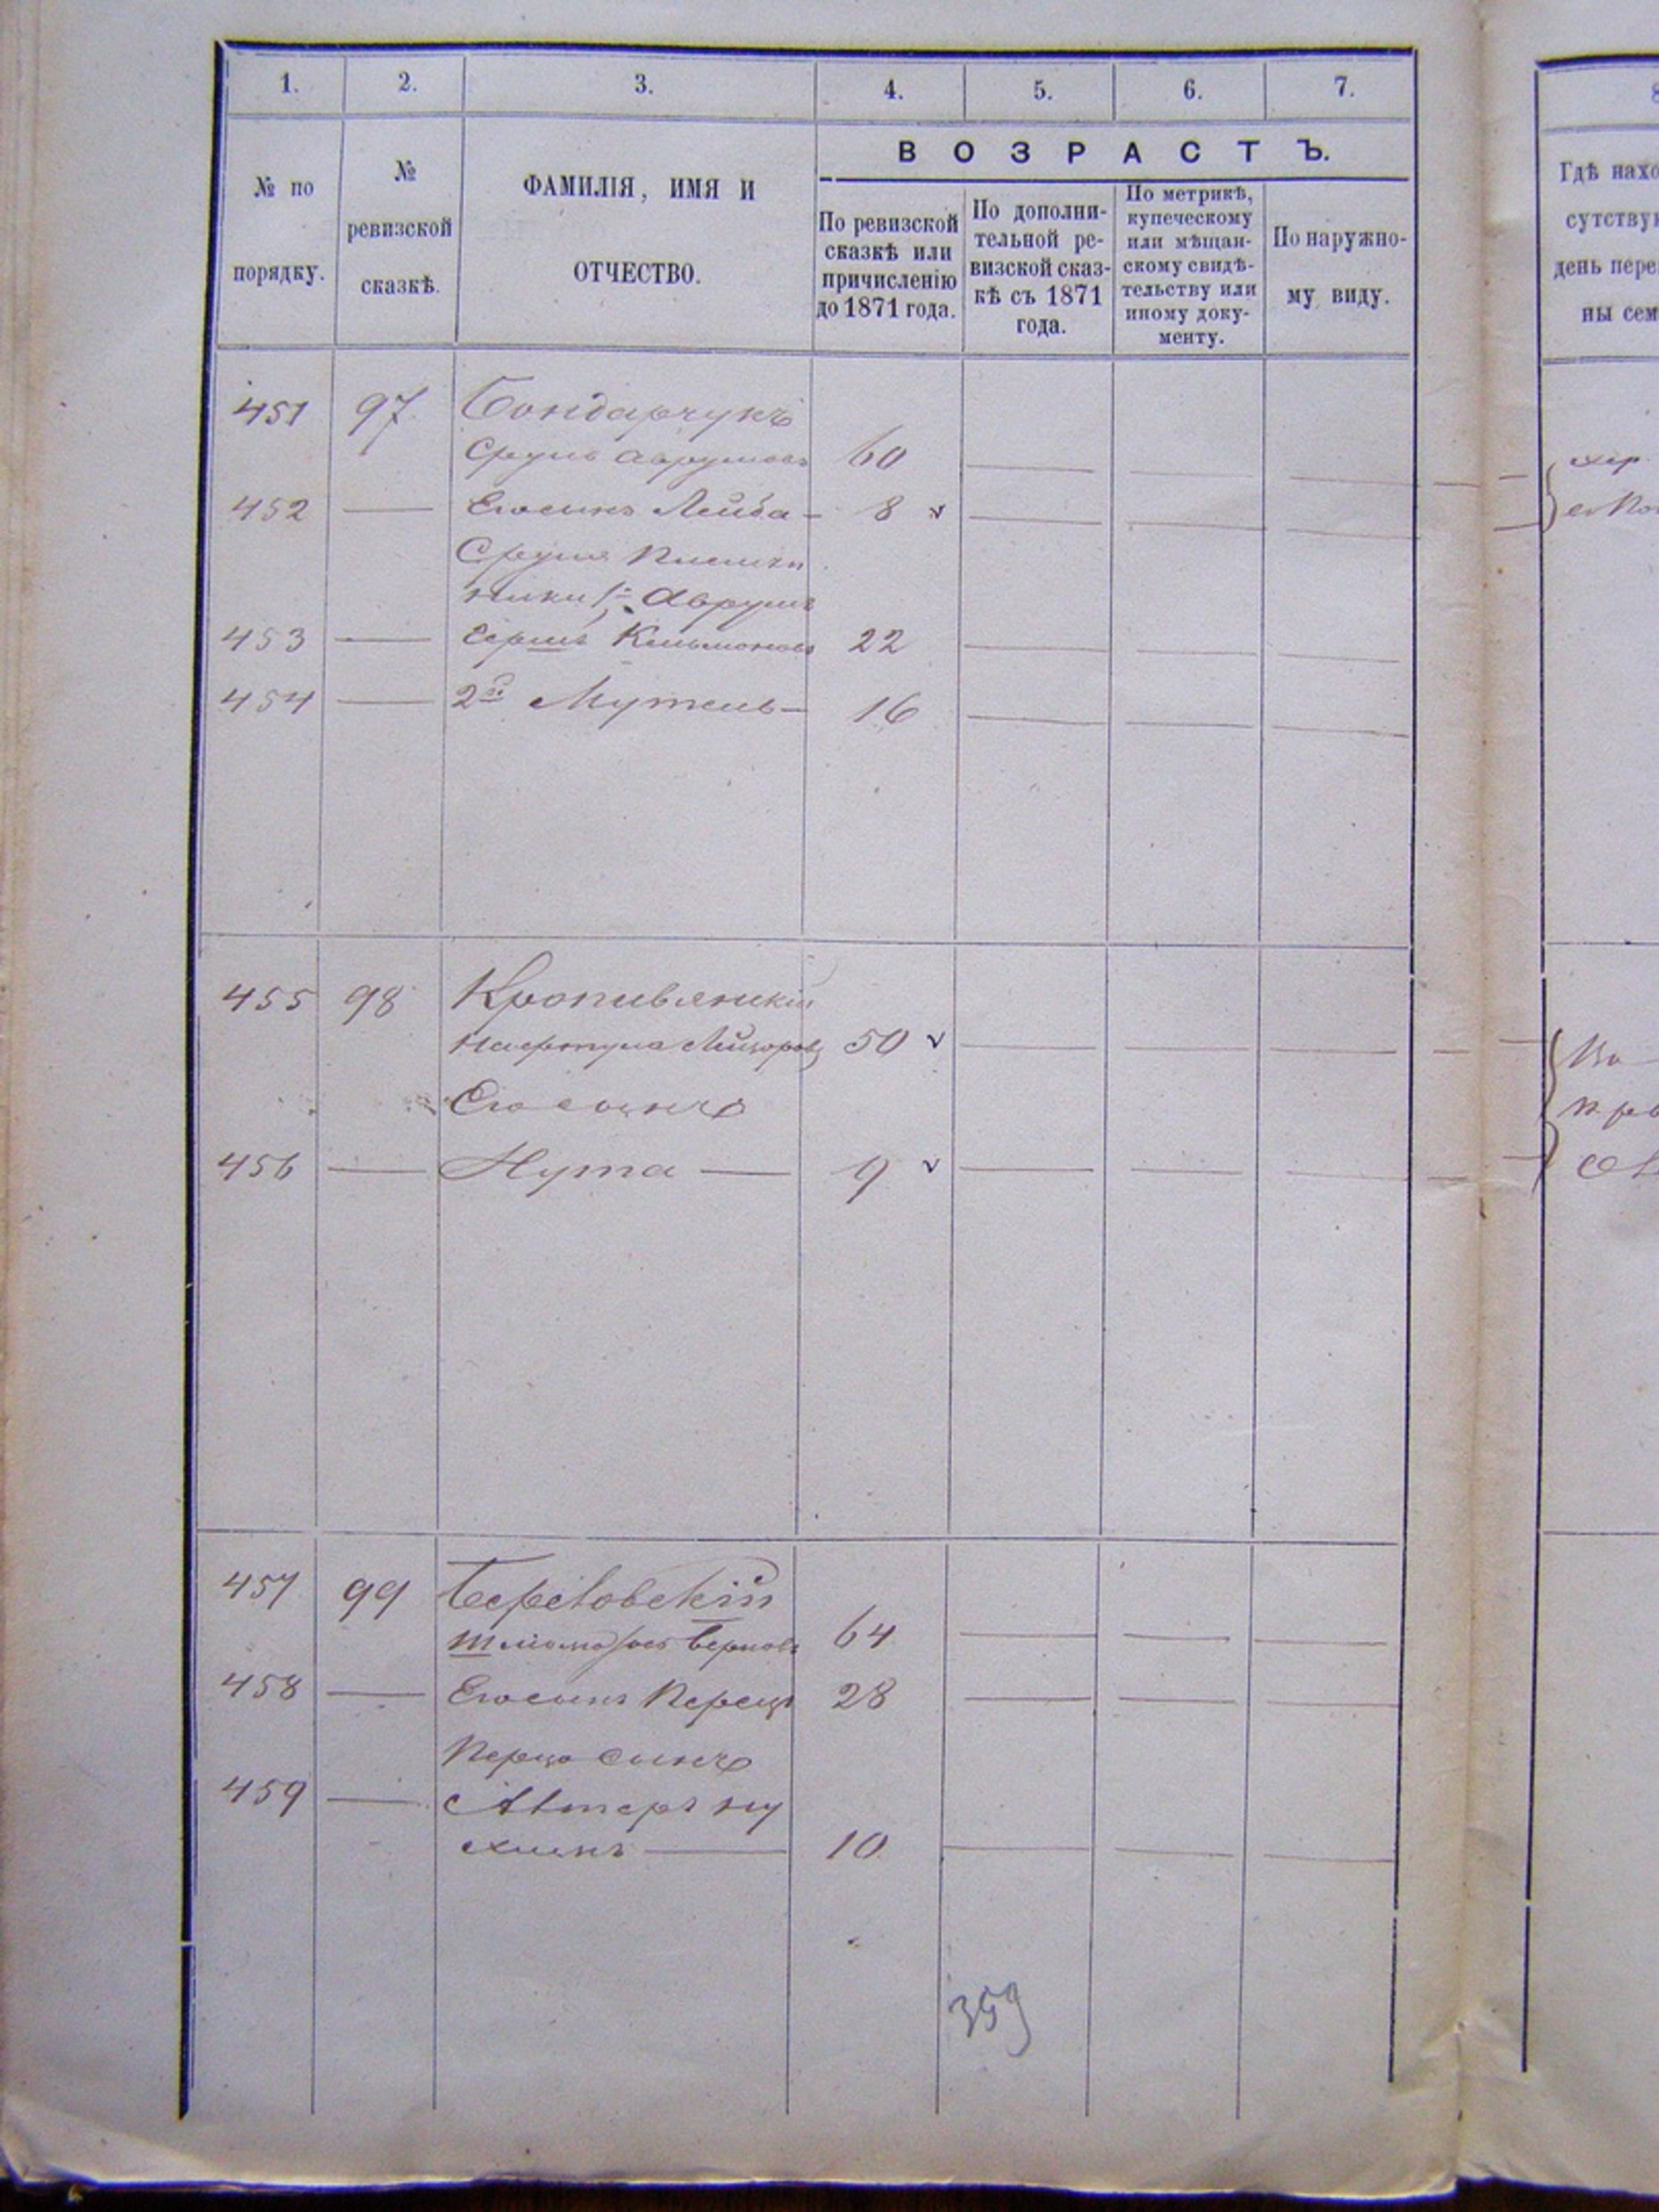 1. 2. 3. 4. 5. 6. 7.
№ по порядку.
№ ревизской сказкѣ.
ФАМИЛІЯ, ИМЯ И ОТЧЕСТВО.
ВОЗРАСТЪ.
По ревизской сказкѣ или причисленію до 1871 года.
По дополнительной ревизской сказкѣ съ 1871 года.
По метрикѣ, купеческому или мѣщанскому свидѣтельству или иному документу.
По наружному виду.
Гдѣ нахо
сутствую
день пере
ны сем
451 97 Бондарчукъ
Срулъ Аврумовъ 60
452 — Его сынъ Лейба — 8 v
Сруля племян
ники 1й Аврумъ
453 — Гершъ Кельмановъ 22
454 — 2й Мутель — 16
455 98 Кропивянскій
50 v
Его сынъ
456 — Нута — 9 v
457 99
Берковъ 64
458 — Его сынъ Перецъ 28
Перца сынъ
459 — Алтеръ Ну
химъ — 10
359